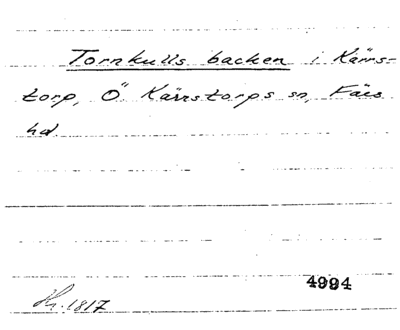 Tornkulls backen i Kärrs-
torp, Ö Kärrstorps sn, Färs
hd.
4994
Hr. 1817